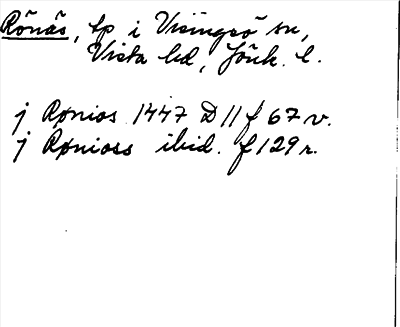 Rönäs, bp i Visingsö sn,
Vista hd, Jönk. l.
j Rønios 1447 D 11 f 67 v.
j Rønioss ibid. f 129 r.